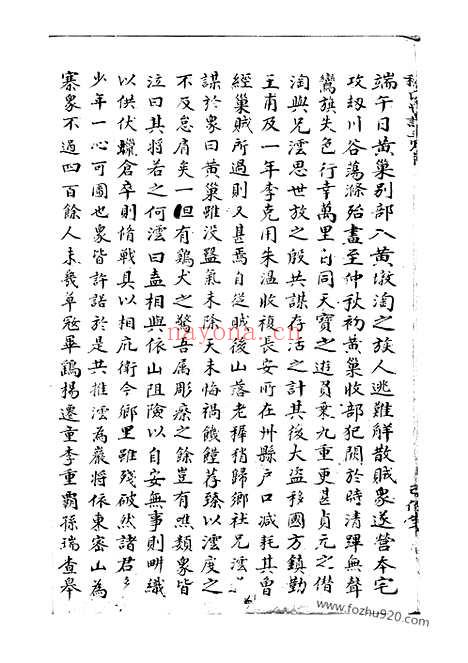 端午日黄巢别部入黄墩淘之族人逃難解散賊衆遂营本宅
攻刼川谷蕩滌殆盡至仲秋初黄巢收部犯関於時清蹕無聲
鸞旗失色行幸萬里白同天寶之遊員乗九重更甚貞元之僣
淘與兄澐思世故之殷共謀存活之計其後大盗移國方鎮勤
王甫及一年李克用朱温收復長安所在州縣户口减耗其曾
經巢賊所過則又甚焉自送賊後山落老穉稍歸鄉社兄澐
謀於衆曰黄巢雖沒盗氣未除天未悔禍饑饉荐臻以澐度之
不及息肩矣一但有鷄犬之驚吾属彫瘵之餘豈有噍類衆皆
泣曰其將若之何澐曰盍相與依山阻險以自安無事則畊織
以供伏蠟倉卒則脩戰具以相庇衛今鄉里雖残破然諸君
少年一心可圖也衆皆許諾於是共推澐為巖将依東密山為
寨衆不過四百餘人未幾草冦畢鷂揚遷重李重覇孫瑞查皋
nayona.cn
www.fozhu920.com